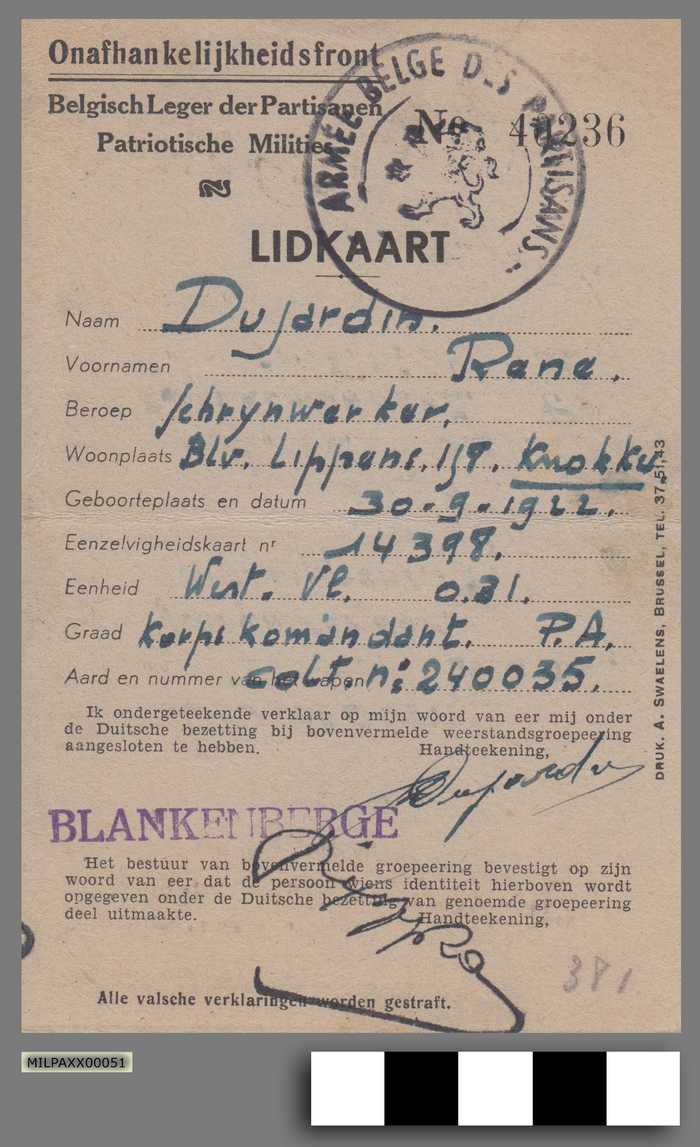 Onafhankelijkheidsfront
Belgisch Leger der Partisanen
Patriotische Milities
ARMÉE BELGE DES PARTISANS.
No 40236
LIDKAART
Naam Dujardin.
Voornamen Rene.
Beroep schrynwerker.
Woonplaats Blv. Lippens. 157. Knokke.
Geboorteplaats en datum 30-9-1922.
Eenzelvigheidskaart nr 14398.
Eenheid West. Vl. 0.31.
Graad Korps komandant. P.A.
Aard en nummer van het wapen colt. n: 240035.
Ik ondergeteekende verklaar op mijn woord van eer mij onder
de Duitsche bezetting bij bovenvermelde weerstandsgroepeering
aangesloten te hebben. Handteekening,
Dujardin
BLANKENBERGE
Het bestuur van bovenvermelde groepeering bevestigt op zijn
woord van eer dat de persoon wiens identiteit hierboven wordt
opgegeven onder de Duitsche bezetting van genoemde groepeering
deel uitmaakte. Handteekening,
381
Alle valsche verklaringen worden gestraft.
DRUK. A. SWAELENS, BRUSSEL, TEL. 37.51.43
MILPAXX00051